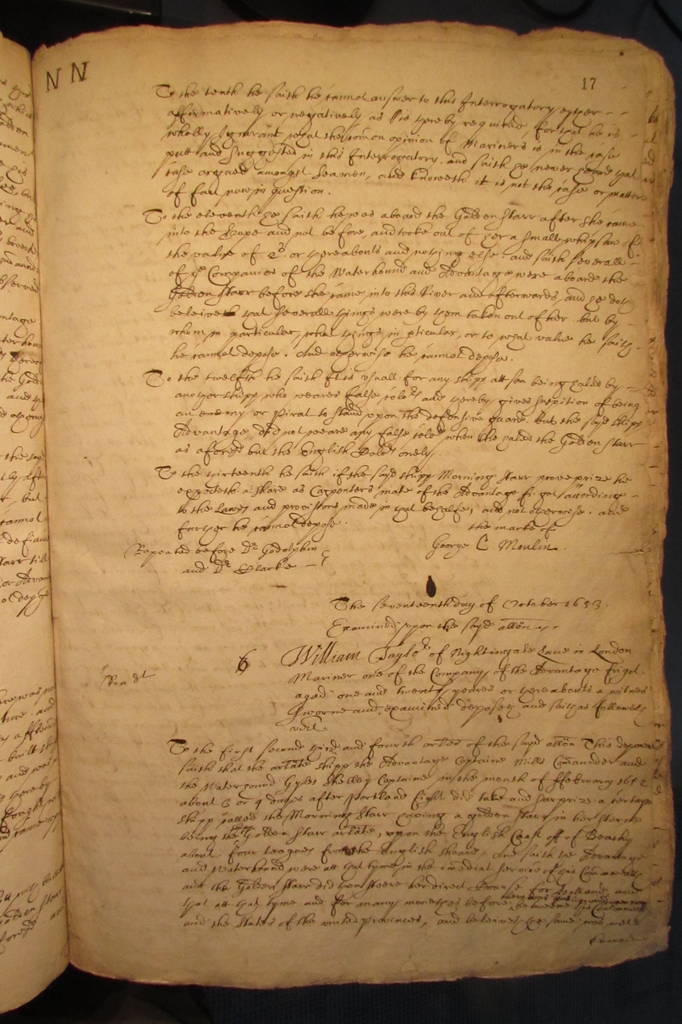 N N
17
To the tenth he saith he cannot answer to this Interrogatory eyther
affirmatively or negatively as hee is thereby required, for that he is
wholly ignorant what the common opinion of Mariners is in the case
putt and suggested in this Interrogatory. and saith he never heard that
case argued amongst Seamen, and knoweth it is not the case or matter
of fact now in question.
To the eleventh he saith he was aboard the Golden Starr after she came
into the Hope and not before, and tooke out of her a small
the value of 2s or thereabouts and nothing else and saith severall
of the Companies of the Waterhound and Advantage were aboard the
Golden Starr before she came into this River and afterwards, and he doth
beleive that severall things were by them taken out of her but by
whom in particular, what things in pticular, or to what value he saith
he cannot depose. And otherwise he cannot depose.
To the twelfth he saith It is usuall for any shipp att sea being called by
another shipp who weares false colors and thereby gives suspition of being
an enemy or Pirat to stand upon the defensive guard. but the sayd shipp
Advantage did not weare any false colors when she called the Golden Starr
as aforesd but the English Colors onely.
To the thirteenth he saith if the sayd shipp Morning Starr prove prize he
expecteth a share as Carpenters mate of the Advantage frigat according
to the Lawes and provisions made in that behalfe, and not otherwise. And
further he cannot depose.
the marke of
George C Moulin
Repeated before Dr Godolphin
and Dr Clarke
The seventeenth day of October 1653.
Examined upon the sayd allon.
6
William Taylor of Nightingale Lane in London
Mariner one of the Company of the Advantage Frigat
aged one and twenty yeares or thereabouts a witnes
sworne and examined deposeth and saith as followeth
vizt.
To the first second third and fourth arles of the sayd allon This deponent
saith that the arlate shipp the Advantage Captaine Mills Comander and
the Waterhound Gyles Shelley Captaine in the month of ffebruary 1652
about 3 or 4 dayes after Portland fight did take and surprize a certaine
shipp called the Morning Starr having a golden Starr in her Starne
being the Golden Starr arlate, upon the English Coast off of Beachy
about four leagues from the English shoare, And saith the Advantage
and Waterhound were att that tyme in the imediat service of this Comonwealth
and the Golden Starr did then steere her direct Course for Holland, and
that att that tyme and for many moneths before
and the States of the united provinces, and beleiveth the same was well